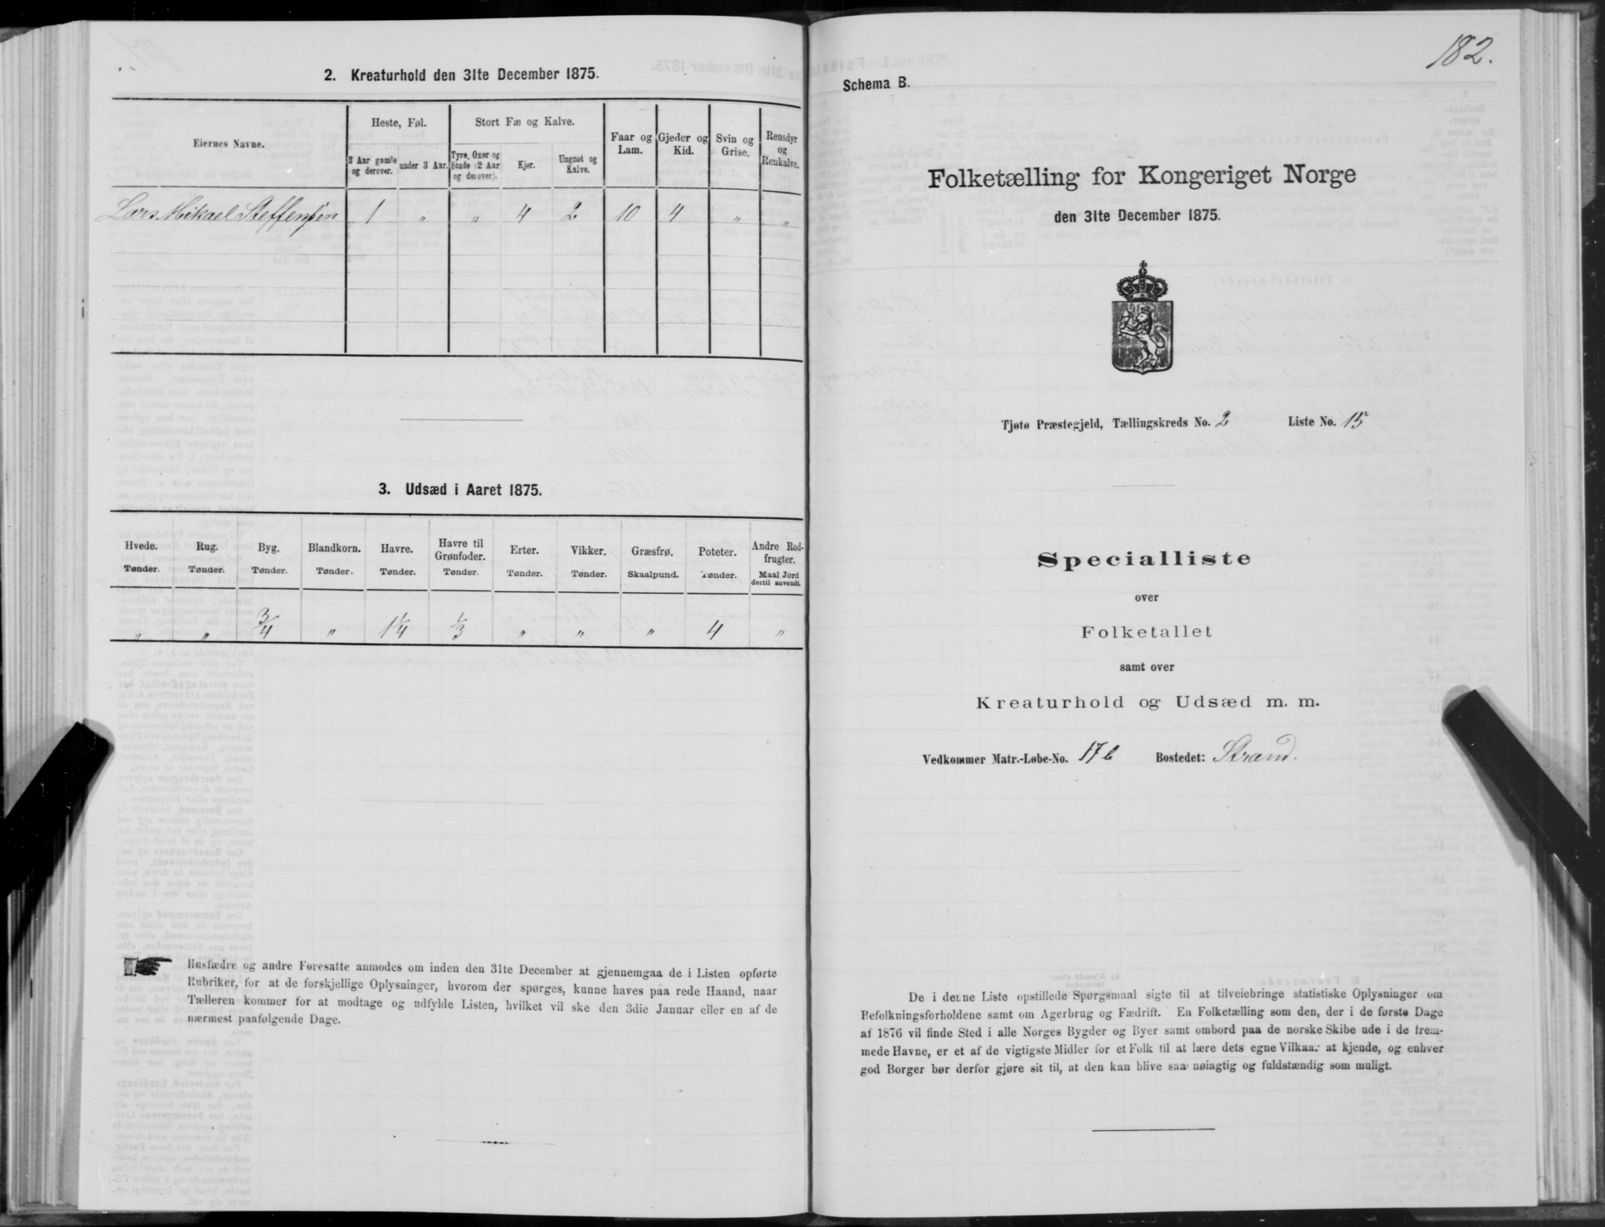 2. Kreaturhold den 31te December 1875.
Eiernes Navne.
Heste, Føl.
Stort Fæ og Kalve.
Faar og Lam.
Gjeder og Kid.
Svin og Grise.
Rensdyr og Renkalve.
3 Aar gamle og derover.
under 3 Aar.
Tyre, Oxer og Stude (2 Aar og derover).
Kjør.
Ungnøt og Kalve.
Lars Mikael Steffensen 1 " " 4 2 10 4 " "
3. Udsæd i Aaret 1875.
Hvede. Rug. Byg. Blandkorn. Havre. Havre til Grønfoder. Erter. Vikker. Græsfrø. Poteter. Andre Rodfrugter.
Tønder. Tønder. Tønder. Tønder. Tønder. Tønder. Tønder. Tønder. Skaalpund. Tønder. Maal Jord dertil anvendt.
" " 3/4 " 1 1/4 1/3 " " " 4 "
Husfædre og andre Foresatte anmodes om inden den 31te December at gjennemgaa de i Listen opførte
Rubriker, for at de forskjellige Oplysninger, hvorom der spørges, kunne haves paa rede Haand, naar
Tælleren kommer for at modtage og udfylde Listen, hvilket vil ske den 3die Januar eller en af de
nærmest paafølgende Dage.
182.
Schema B.
Folketælling for Kongeriget Norge
den 31te December 1875.
Tjøtø Præstegjeld, Tællingskreds No. 2 Liste No. 15
Specialliste
over
Folketallet
samt over
Kreaturhold og Udsæd m. m.
Vedkommer Matr.-Løbe-No. 17b Bostedet: Strand.
De i denne Liste opstillede Spørgsmaal sigte til at tilveiebringe statistiske Oplysninger om
Befolkningsforholdene samt om Agerbrug og Fædrift. En Folketælling som den, der i de første Dage
af 1876 vil finde Sted i alle Norges Bygder og Byer samt ombord paa de norske Skibe ude i de frem-
mede Havne, er et af de vigtigste Midler for et Folk til at lære dets egne Vilkaar at kjende, og enhver
god Borger bør derfor gjøre sit til, at den kan blive saa nøiagtig og fuldstændig som muligt.